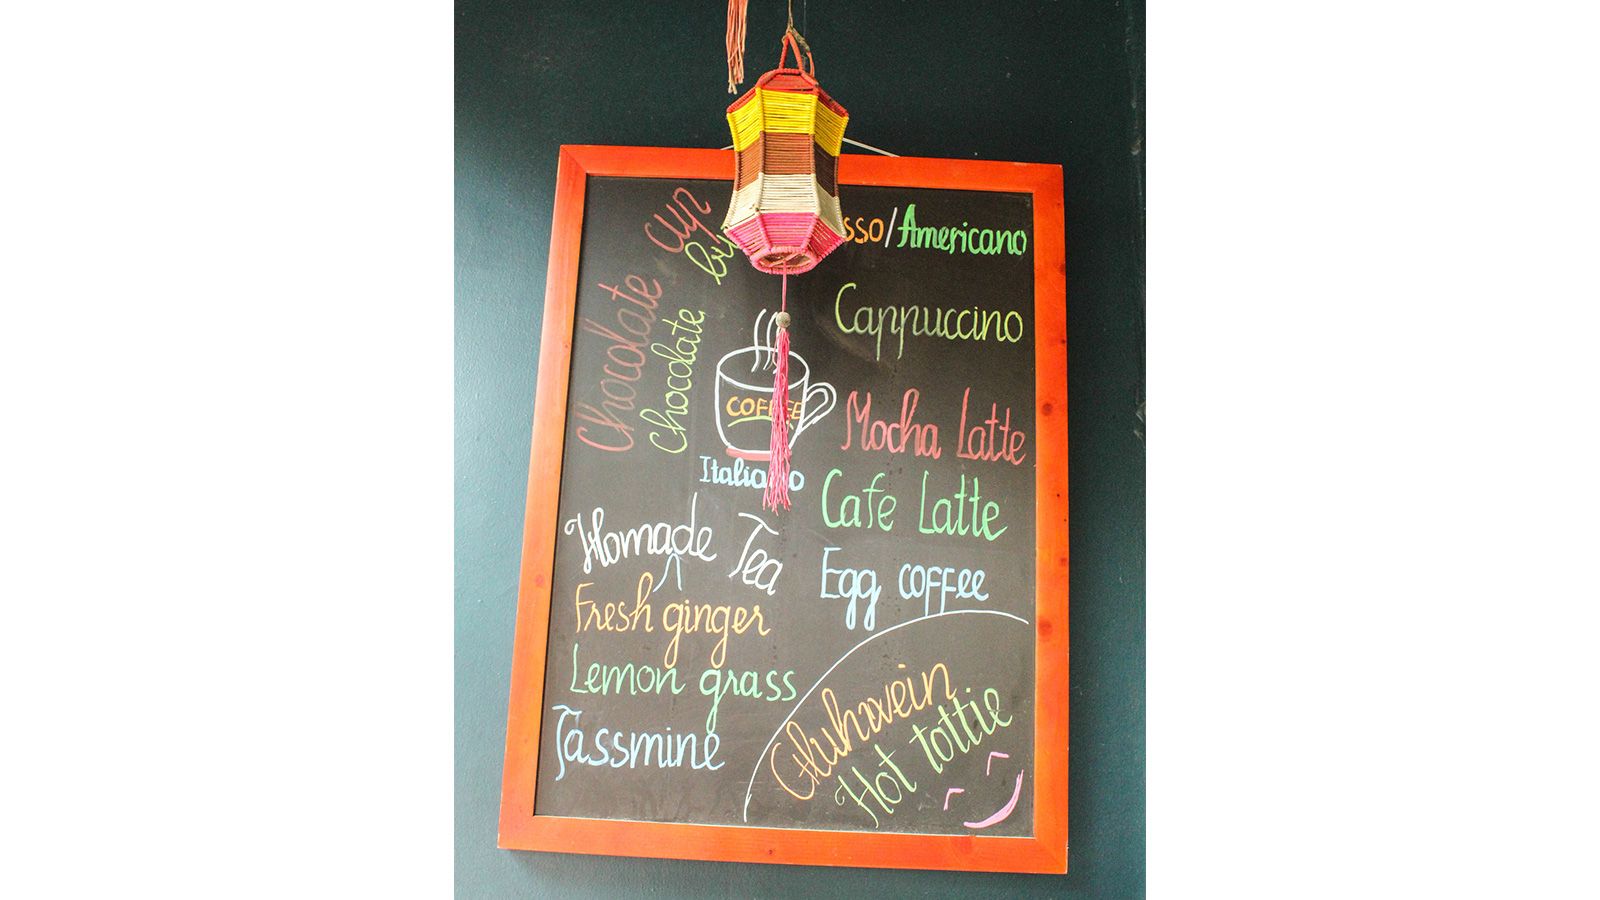 Chocolate cup
chocolate
COFFEE
Italiano
Homade Tea
Fresh ginger
Lemon grass
Jassmine
/Americano
Cappuccino
Mocha Latte
Cafe Latte
Egg coffee
Gluhwein
Hot tottie